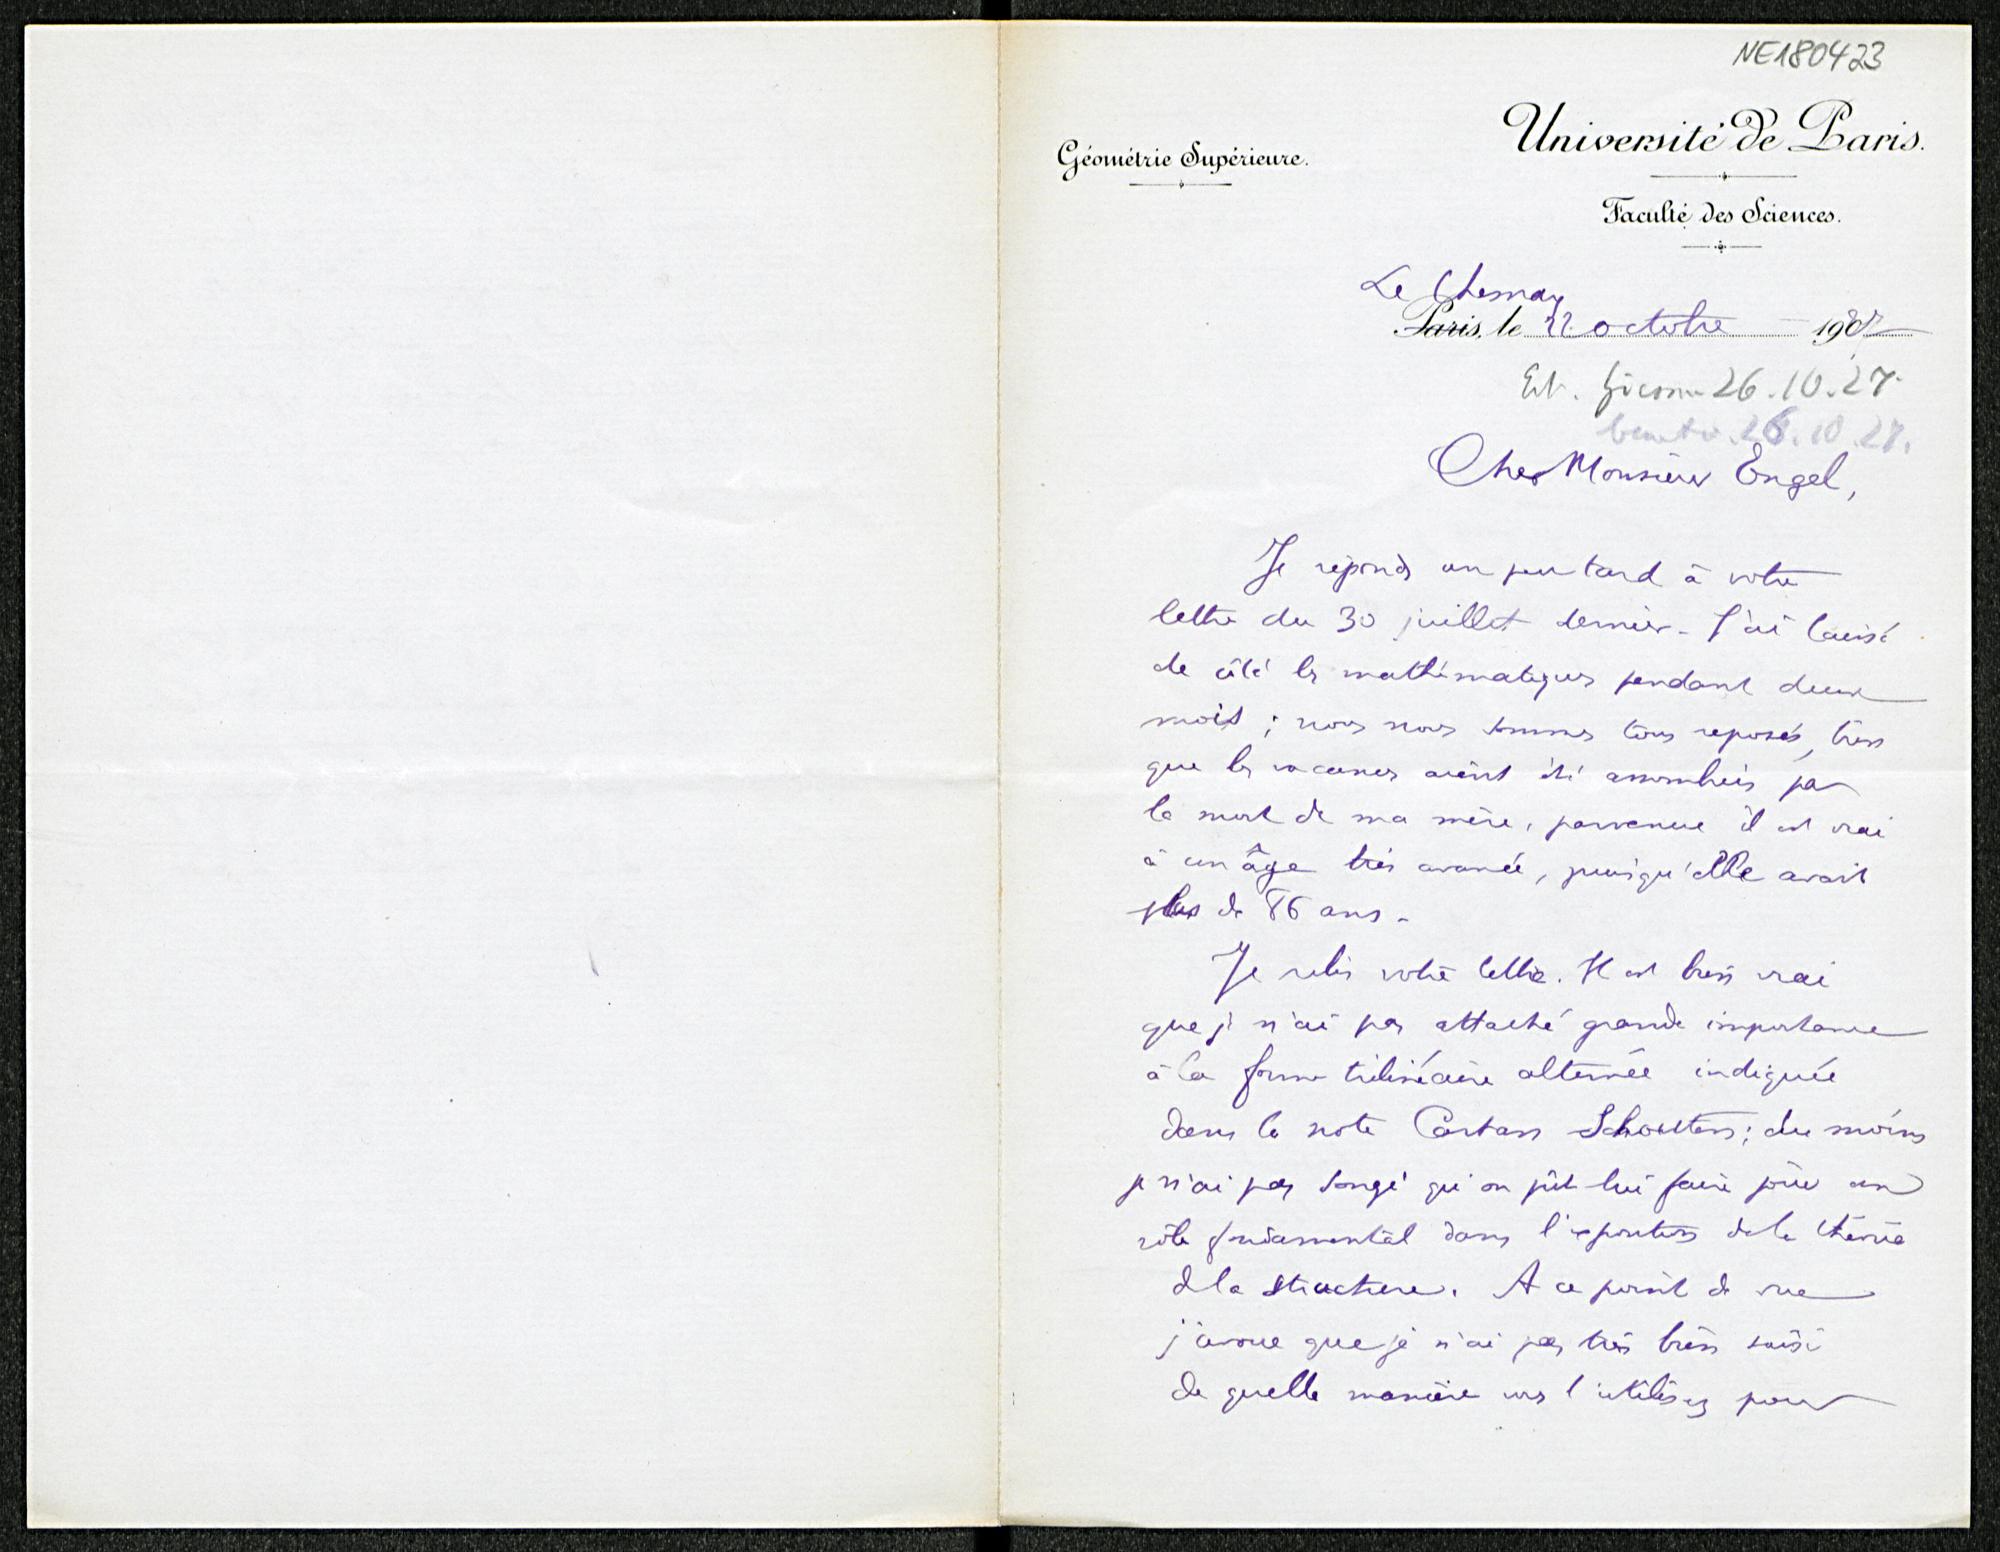 NE180423
Université de Paris.
Géométrie Supérieure.
Faculté des Sciences.
Le Chesnay
Paris, le 22 octobre 1927
26.10.27
26.10.27.
Cher Monsieur Engel,
Je réponds un peu tard à votre
lettre du 30 juillet dernier. J'ai laissé
de côté les mathématiques pendant deux
mois ; nous nous sommes tous reposés, bien
que les vacances aient été assombries par
la mort de ma mère, parvenue il est vrai
à un âge très avancé, puisqu'elle avait
plus de 86 ans.
Je relis votre lettre. Il est bien vrai
que je n'ai pas attaché grande importance
à la forme trilinéaire alternée indiquée
dans la note Cartan Schouten ; du moins
je n'ai pas songé qu'on pût lui faire jouer un
rôle fondamental dans l'exposition de la théorie
de la structure. A ce point de vue
j'avoue que je n'ai pas très bien saisi
de quelle manière vous l'utilisez pour